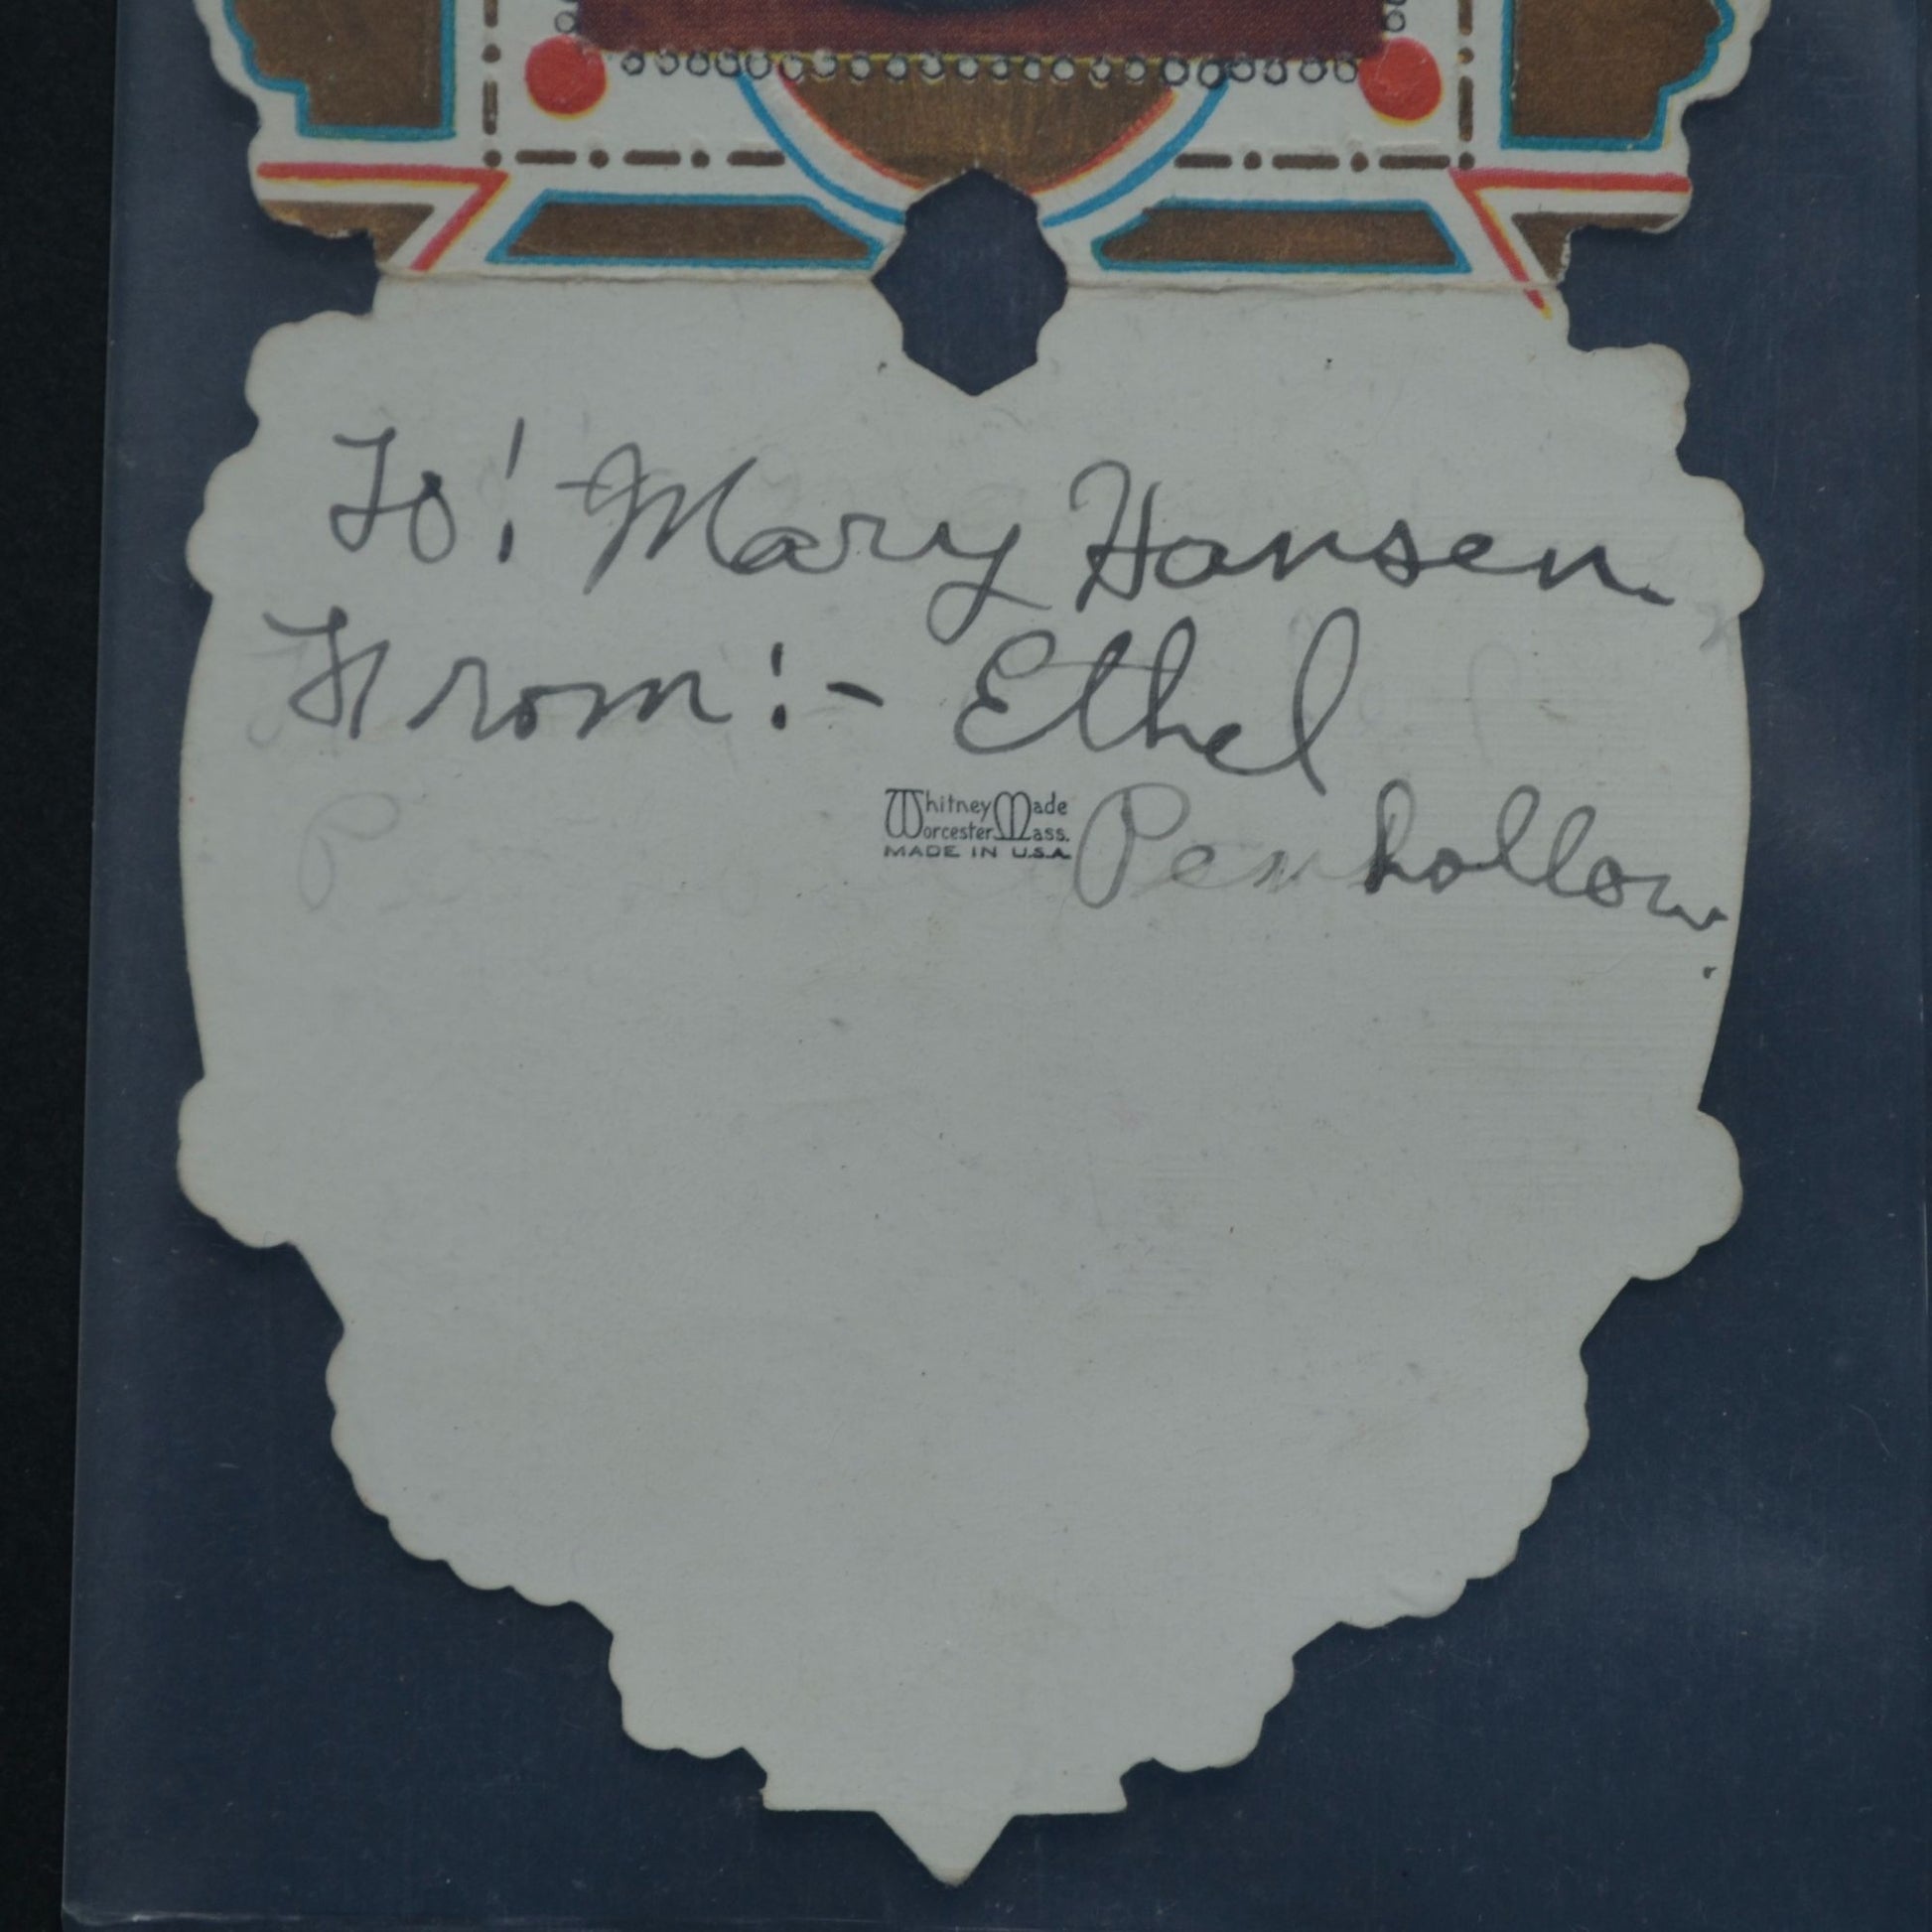 To! Mary Hansen
From:- Ethel
Penhollow.
Whitney Made
Worcester, Mass.
MADE IN U.S.A.